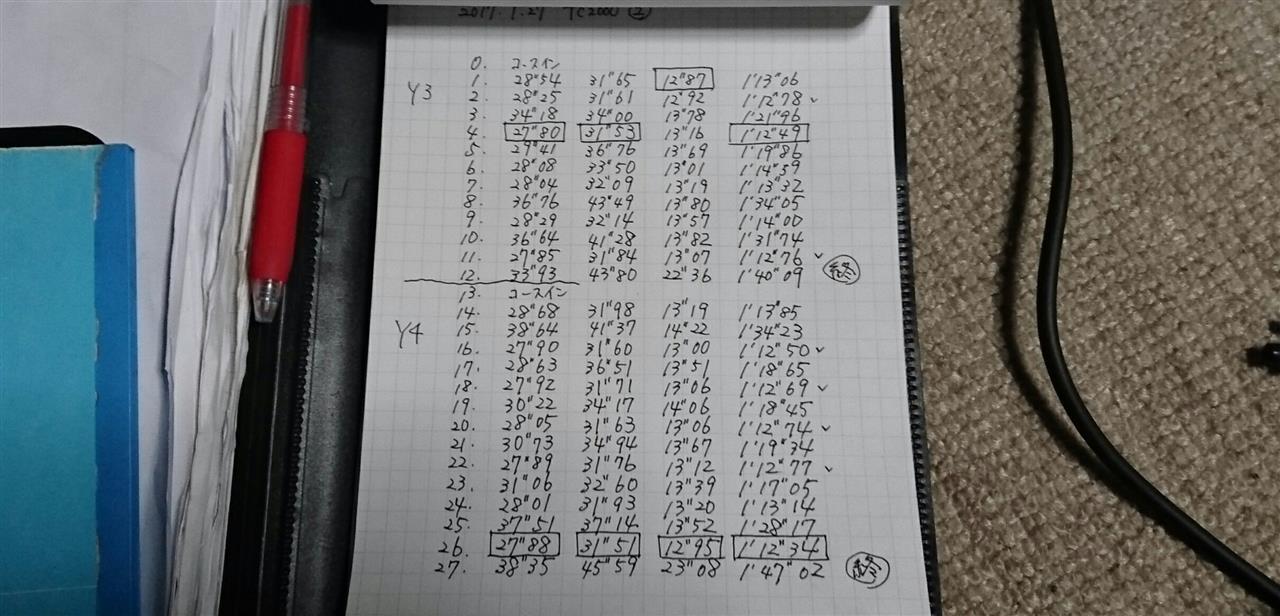 2017.1.27 TC2000 ②
0. コースイン
Y3 1. 28"54 31"65 12"87 1'13"06
2. 28"25 31"61 12"92 1'12"78 ✓
3. 34"18 34"00 13"78 1'21"96
4. 27"80 31"53 13"16 1'12"49
5. 29"41 36"76 13"69 1'19"86
6. 28"08 33"50 13"01 1'14"39
7. 28"04 32"09 13"19 1'13"32
8. 36"76 43"49 13"80 1'34"05
9. 28"29 32"14 13"57 1'14"00
10. 36"64 41"28 13"82 1'31"74
11. 27"85 31"84 13"07 1'12"76 ✓
12. 33"93 43"80 22"36 1'40"09 終
13. コースイン
14. 28"68 31"98 13"19 1'13"85
Y4 15. 38"64 41"37 14"22 1'34"23
16. 27"90 31"60 13"00 1'12"50 ✓
17. 28"63 36"51 13"51 1'18"65
18. 27"92 31"71 13"06 1'12"69 ✓
19. 30"22 34"17 14"06 1'18"45
20. 28"05 31"63 13"06 1'12"74 ✓
21. 30"73 34"94 13"67 1'19"34
22. 27"89 31"76 13"12 1'12"77 ✓
23. 31"06 32"60 13"39 1'17"05
24. 28"01 31"93 13"20 1'13"14
25. 37"51 37"14 13"52 1'28"17
26. 27"88 31"51 12"95 1'12"34
27. 38"35 45"59 23"08 1'47"02 終